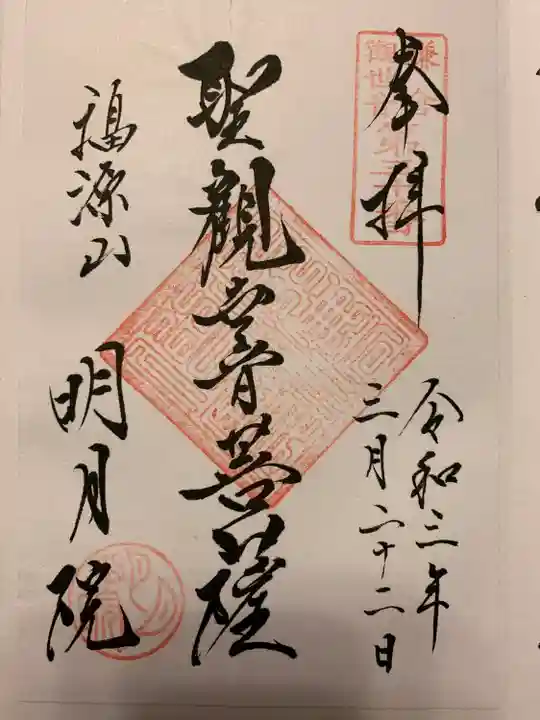 奉拝
令和三年
三月二十二日
聖觀世音菩薩
福源山
明月院